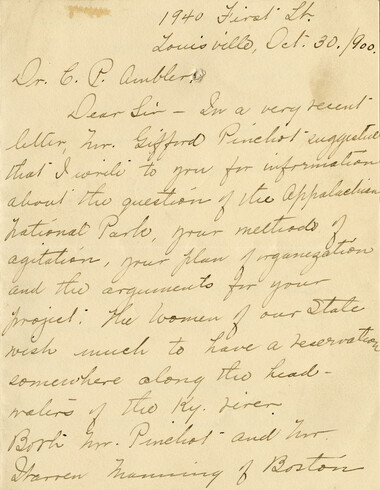 1940 First St.
Louisville, Oct. 30. 1900.
Dr. C. P. Ambler,
Dear Sir - In a very recent
letter, Mr. Gifford Pinchot suggested
that I write to you for information
about the question of the Appalachian
National Park, your methods of
agitation, your plan of organization
and the arguments for your
project. The women of our State
wish much to have a reservation
somewhere along the head-
waters of the Ky. river.
Both Mr. Pinchot and Mr.
Warren Manning of Boston